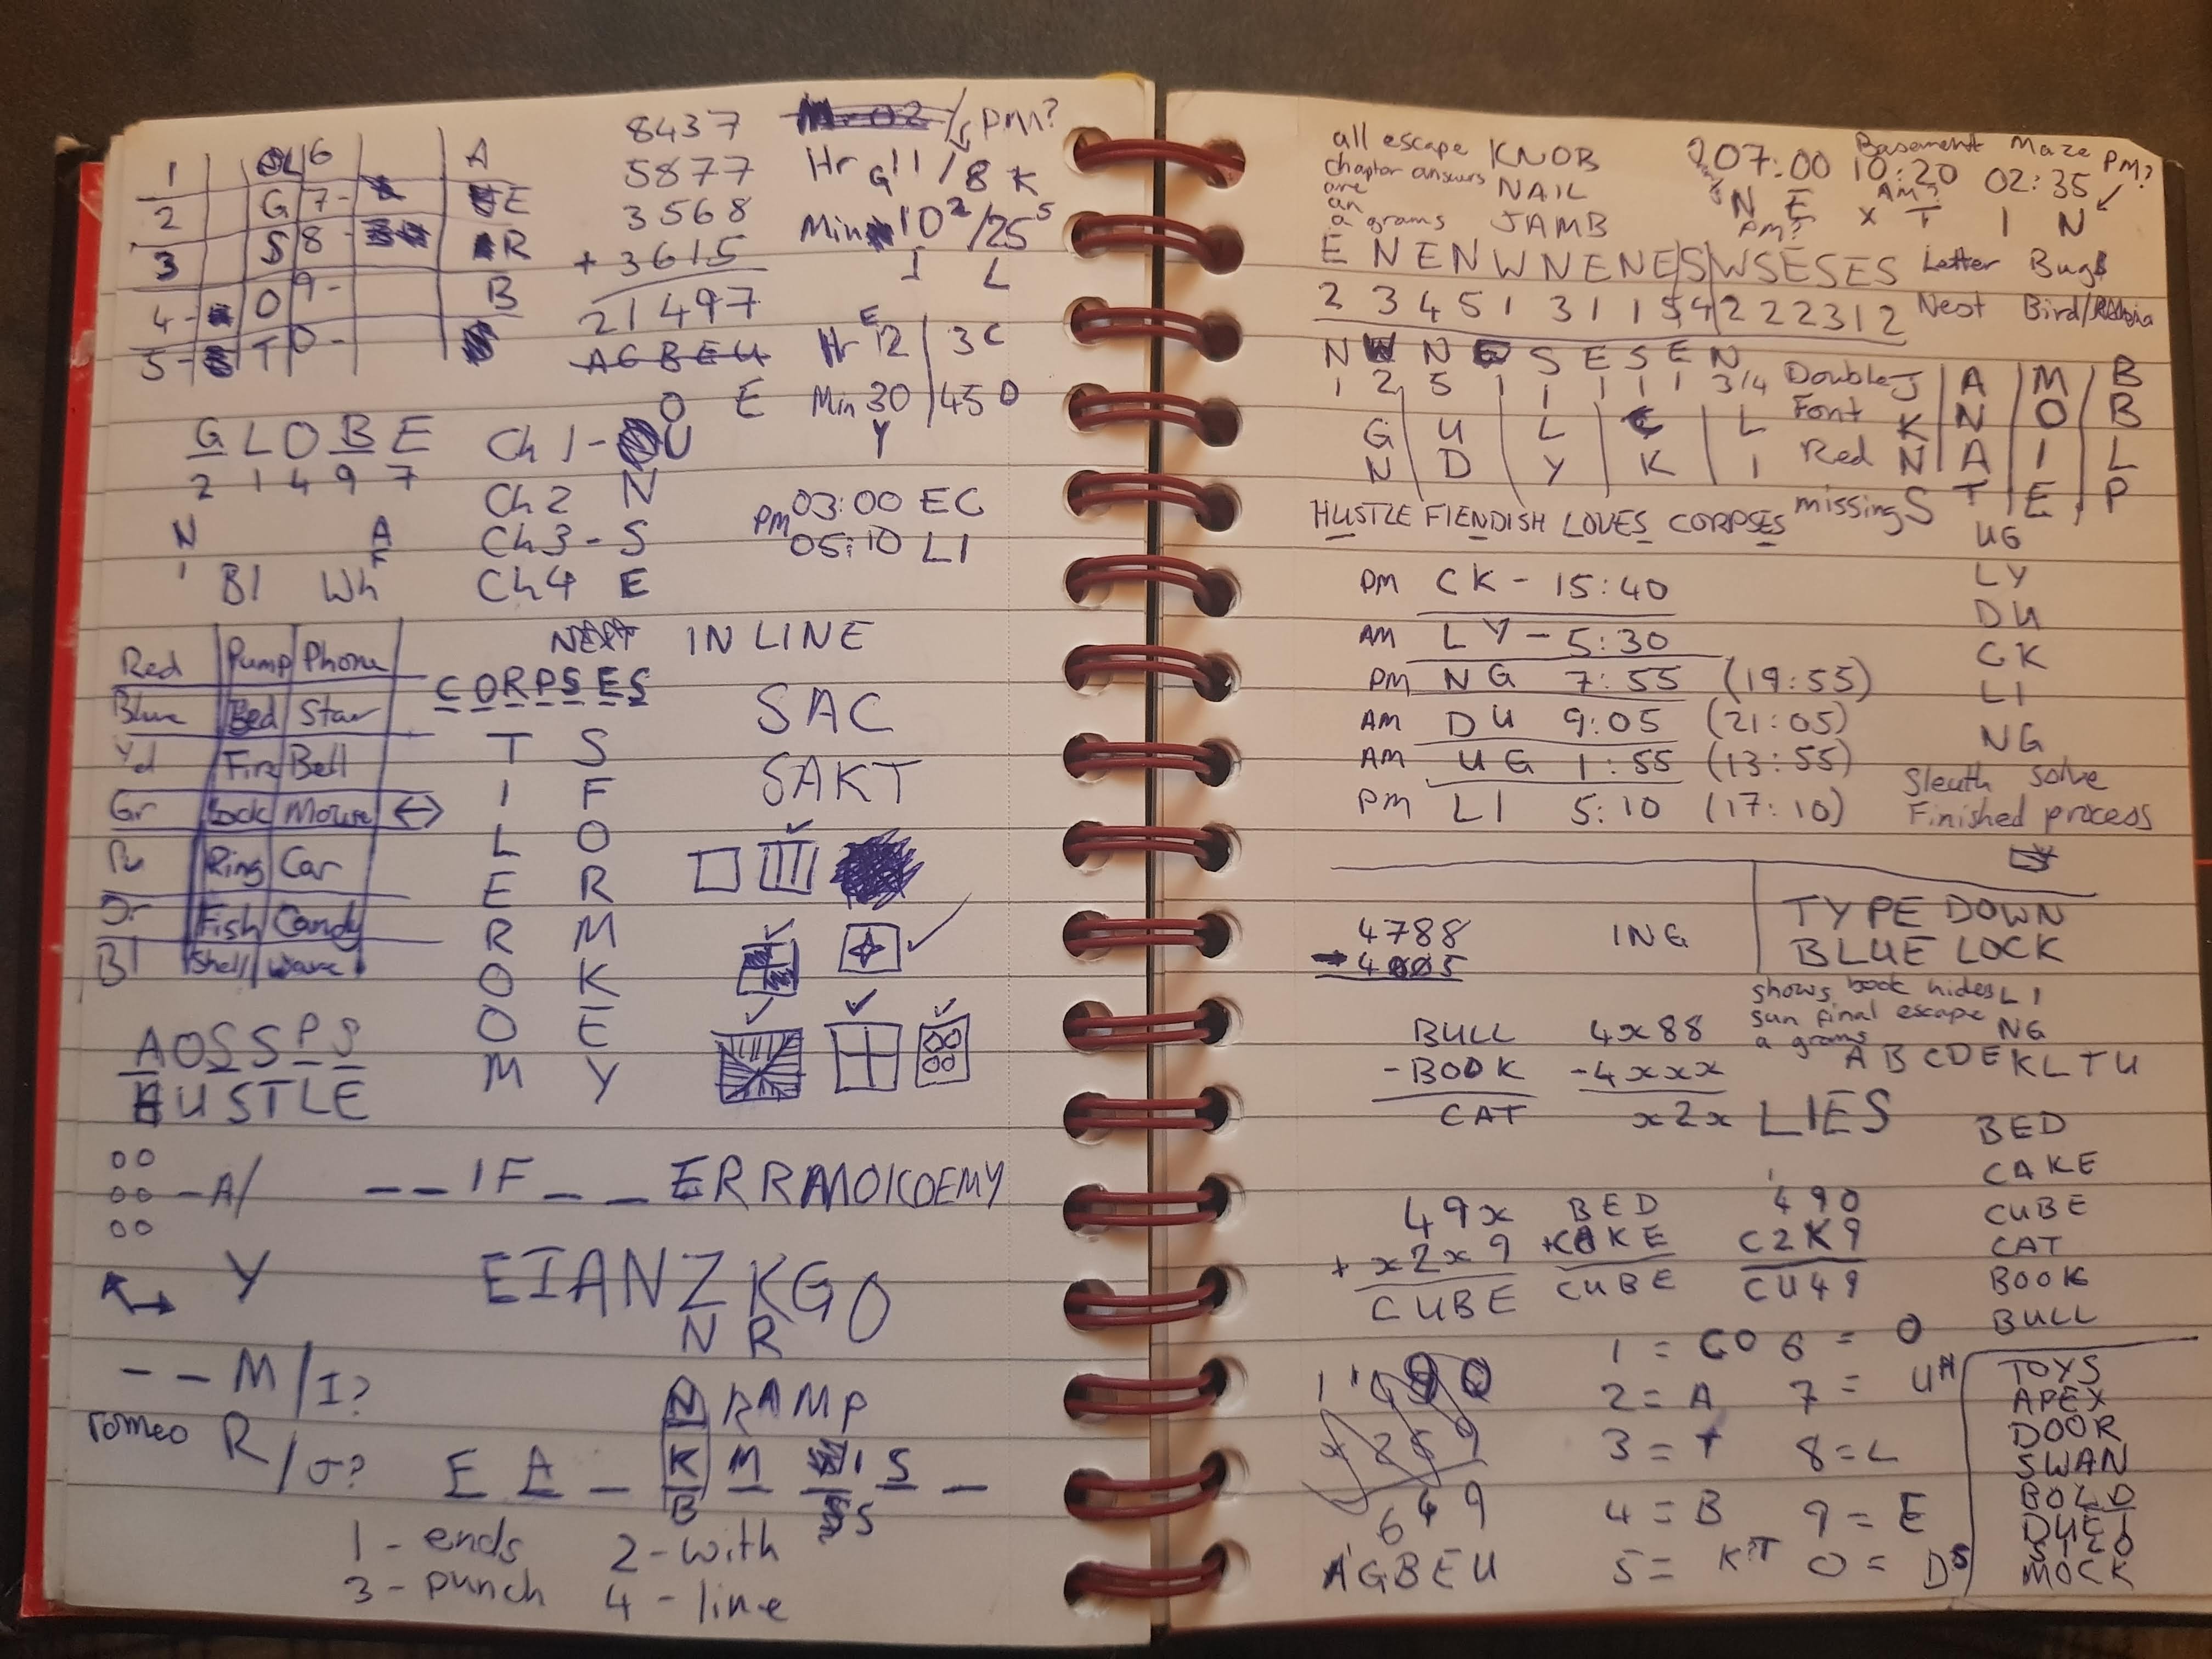 1 L 6 A
2 G 7- E
3 S 8- R
4- O 9- B
5- T 0-
8437
5877
3568
+ 3615
21497
AGBEU
O E
PM?
Hr G 11/8 K
Min 10² /25⁵
I L
Hr E 12 | 3 C
Min 30 | 45 D
Y
GLOBE
2 1 4 9 7
N A
I F
Bl Wh
Ch 1- U
Ch2 N
Ch3- S
Ch4 E
PM 03:00 EC
05:10 LI
Red Pump Phone
Blue Bed Star
Yel Fire Bell
Gr Sock Mouse ↔
Pu Ring Car
Or Fish Candy
Bl Shell Wave
NEXT IN LINE
CORPSES
T S
I F
L O
E R
R M
O K
O E
M Y
SAC
SAKT
AOSSPS
HUSTLE
-A/
_ _ IF _ _ ERRAMOKOEMY
Y
EIANZKGO
N R
- - M/I?
romeo R/J?
N RAMP
E A _ K M I S _
B S S
1 - ends 2 - with
3 - punch 4 - line
all escape
chapter answers
are
an
a grams
KNOB
NAIL
JAMB
Basement Maze PM?
07:00 10:20 02:35
N E x T I N
PM? AM?
E N E N W N E N E S W S E S E S Letter Bugs
2 3 4 5 1 3 1 1 5 4 2 2 2 3 1 2 Nest Bird/
N W N E S E S E N
1 2 5 1 1 1 1 1 3/4
Double J A M B
Font K N O B
Red N A I L
missing S T E P
G U L C L
N D Y K I
HUSTLE FIENDISH LOVES CORPSES
UG
LY
DU
CK
LI
NG
PM CK - 15:40
AM LY - 5:30
PM NG 7:55 (19:55)
AM DU 9:05 (21:05)
AM UG 1:55 (13:55)
PM LI 5:10 (17:10)
Sleuth solve
Finished process
4788
- 4005
ING
TYPE DOWN
BLUE LOCK
shows book hides LI
sun final escape NG
a grams
A B C D E K L T U
BULL
-BOOK
CAT
4x88
-4xxx
x2x
LIES
49x
+ x2x9
CUBE
BED
+CAKE
CUBE
490
C2K9
CU49
BED
CAKE
CUBE
CAT
BOOK
BULL
669
AGBEU
1 = C 6 = O
2 = A 7 = U
3 = T 8 = L
4 = B 9 = E
5 = K 0 = D
TOYS
APEX
DOOR
SWAN
BOLD
DUET
MOCK